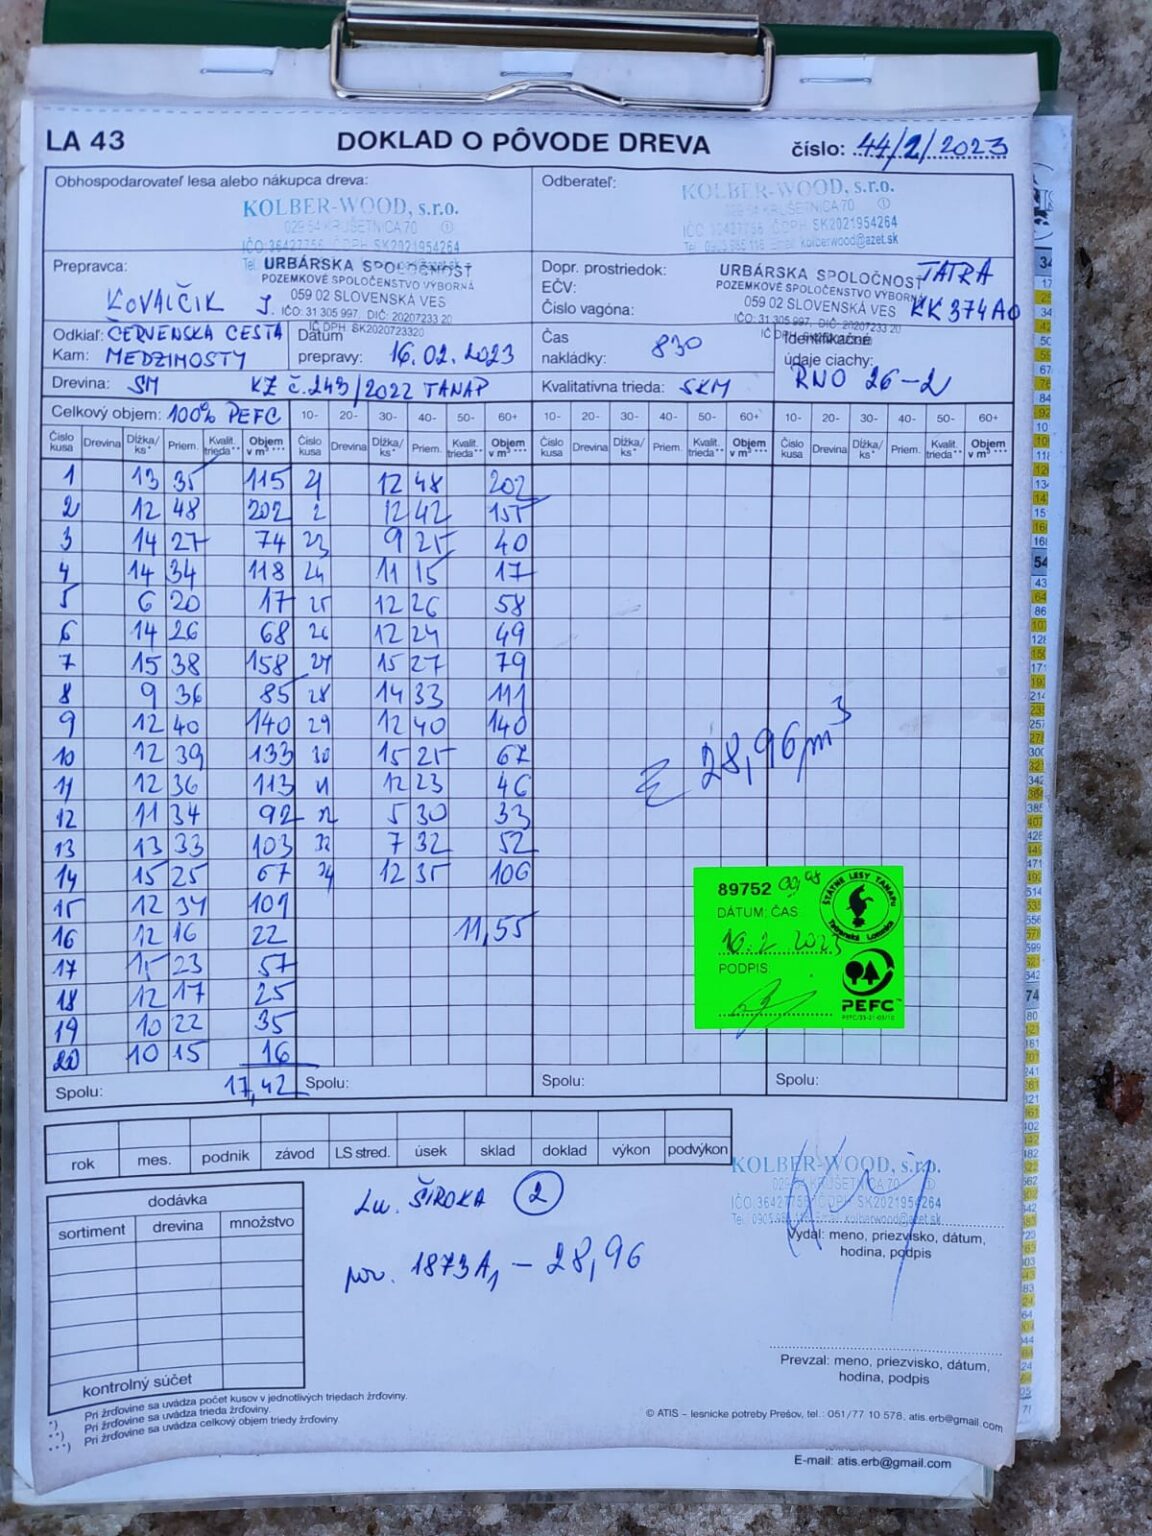 LA 43 DOKLAD O PÔVODE DREVA číslo: 44/2/2023
Obhospodarovateľ lesa alebo nákupca dreva: Odberateľ:
KOLBER-WOOD, s.r.o. KOLBER-WOOD, s.r.o.
029 54 KRUŠETNICA 70 029 54 KRUŠETNICA 70
IČO:36427756 IČ DPH SK2021954264 IČO: IČ DPH SK2021954264
kolberwood@azet.sk
Prepravca: URBÁRSKA SPOLOČNOSŤ Dopr. prostriedok: URBÁRSKA SPOLOČNOSŤ TATRA
POZEMKOVÉ SPOLOČENSTVO VYBORNÁ EČV: POZEMKOVÉ SPOLOČENSTVO VYBORNÁ
KOVALČIK J. 059 02 SLOVENSKÁ VES Číslo vagóna: 059 02 SLOVENSKÁ VES KK 374AO
IČO: 31 305 997, DIČ: 20207233 20 IČO: 31 305 997, DIČ: 20207233 20
IČ DPH: SK2020723320
Odkiaľ: ČERVENSKA CESTA Dátum Čas Identifikačné
Kam: MEDZIMOSTY prepravy: 16.02.2023 nakládky: 830 údaje ciachy:
RNO 26-2
Drevina: SM KZ č.243/2022 TANAP Kvalitatívna trieda: SKM
Celkový objem: 100% PEFC 10- 20- 30- 40- 50- 60+ 10- 20- 30- 40- 50- 60+ 10- 20- 30- 40- 50- 60+
Číslo kusa Drevina Dĺžka/ks* Priem. Kvalit. trieda** Objem v m³*** Číslo kusa Drevina Dĺžka/ks* Priem. Kvalit. trieda** Objem v m³*** Číslo kusa Drevina Dĺžka/ks* Priem. Kvalit. trieda** Objem v m³*** Číslo kusa Drevina Dĺžka/ks* Priem. Kvalit. trieda** Objem v m³***
1 13 35 115 21 12 48 202
2 12 48 202 2 12 42 155
3 14 27 74 23 9 25 40
4 14 34 118 24 11 15 17
5 6 20 17 25 12 26 58
6 14 26 68 26 12 24 49
7 15 38 158 27 15 27 79
8 9 36 85 28 14 33 111
9 12 40 140 29 12 40 140
10 12 39 133 30 15 25 67
11 12 36 113 12 23 46
12 11 34 92 5 30 33
13 13 33 103 7 32 52
14 15 25 67 34 12 35 106
15 12 34 101
16 12 16 22 11,55
17 15 23 57
18 12 17 25
19 10 22 35
20 10 15 16
Σ 28,96 m³
Spolu: 17,42 Spolu: Spolu: Spolu:
89752
ŠTÁTNE LESY TANAPu
Tatranská Lomnica
DÁTUM, ČAS
16.2.2023
PODPIS
PEFC
rok mes. podnik závod LS stred. úsek sklad doklad výkon podvýkon
KOLBER-WOOD, s.r.o.
029 54 KRUŠETNICA 70
IČO:36427756 IČ DPH SK2021954264
kolberwood@azet.sk
Vydal: meno, priezvisko, dátum,
hodina, podpis
dodávka
sortiment drevina množstvo
kontrolný súčet
ŠIROKA 2
1873A1 - 28,96
Prevzal: meno, priezvisko, dátum,
hodina, podpis
*) Pri žrďovine sa uvádza počet kusov v jednotlivých triedach žrďoviny.
**) Pri žrďovine sa uvádza trieda žrďoviny.
***) Pri žrďovine sa uvádza celkový objem triedy žrďoviny
© ATIS – lesnícke potreby Prešov, tel.: 051/77 10 578, atis.erb@gmail.com
E-mail: atis.erb@gmail.com